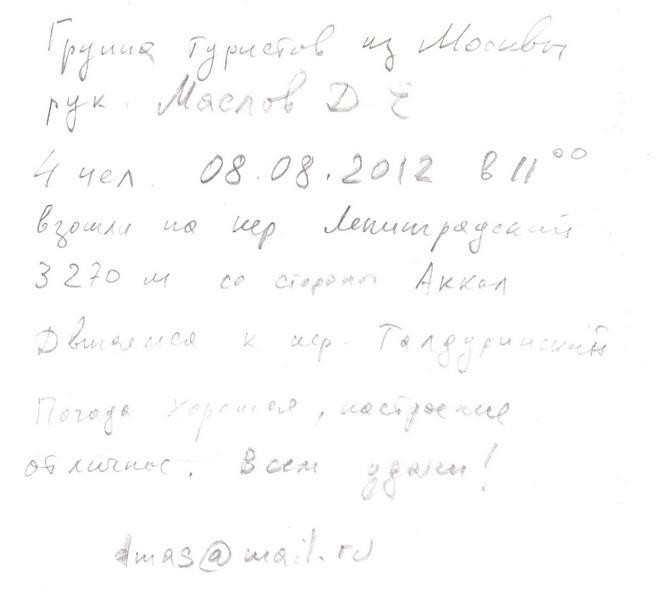 Группа туристов из Москвы
рук. Маслов Д Е
4 чел. 08.08.2012 в 11⁰⁰
взошли на пер Ленинградский
3270 м со стороны Аккол
Двигаемся к пер. Талдуринский
Погода хорошая, настроение
отличное. Всем удачи!
dmas@mail.ru